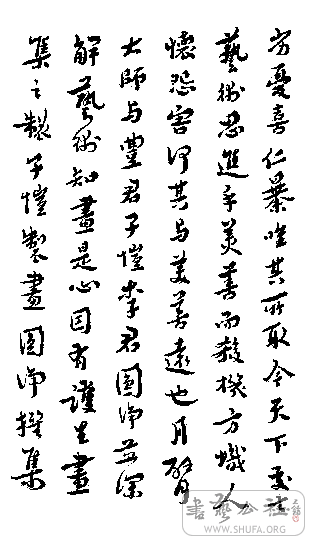 方憂喜仁暴唯其所取今天下交言
藝術思進乎美善而殺機方熾人
懷怨害何其与美善遠也月臂
大師与豐君子愷李君圓淨並深
解藝術知畫是心因有護生畫
集之製子愷製畫圓淨撰集
書藝公社
WWW.SHUFA.ORG